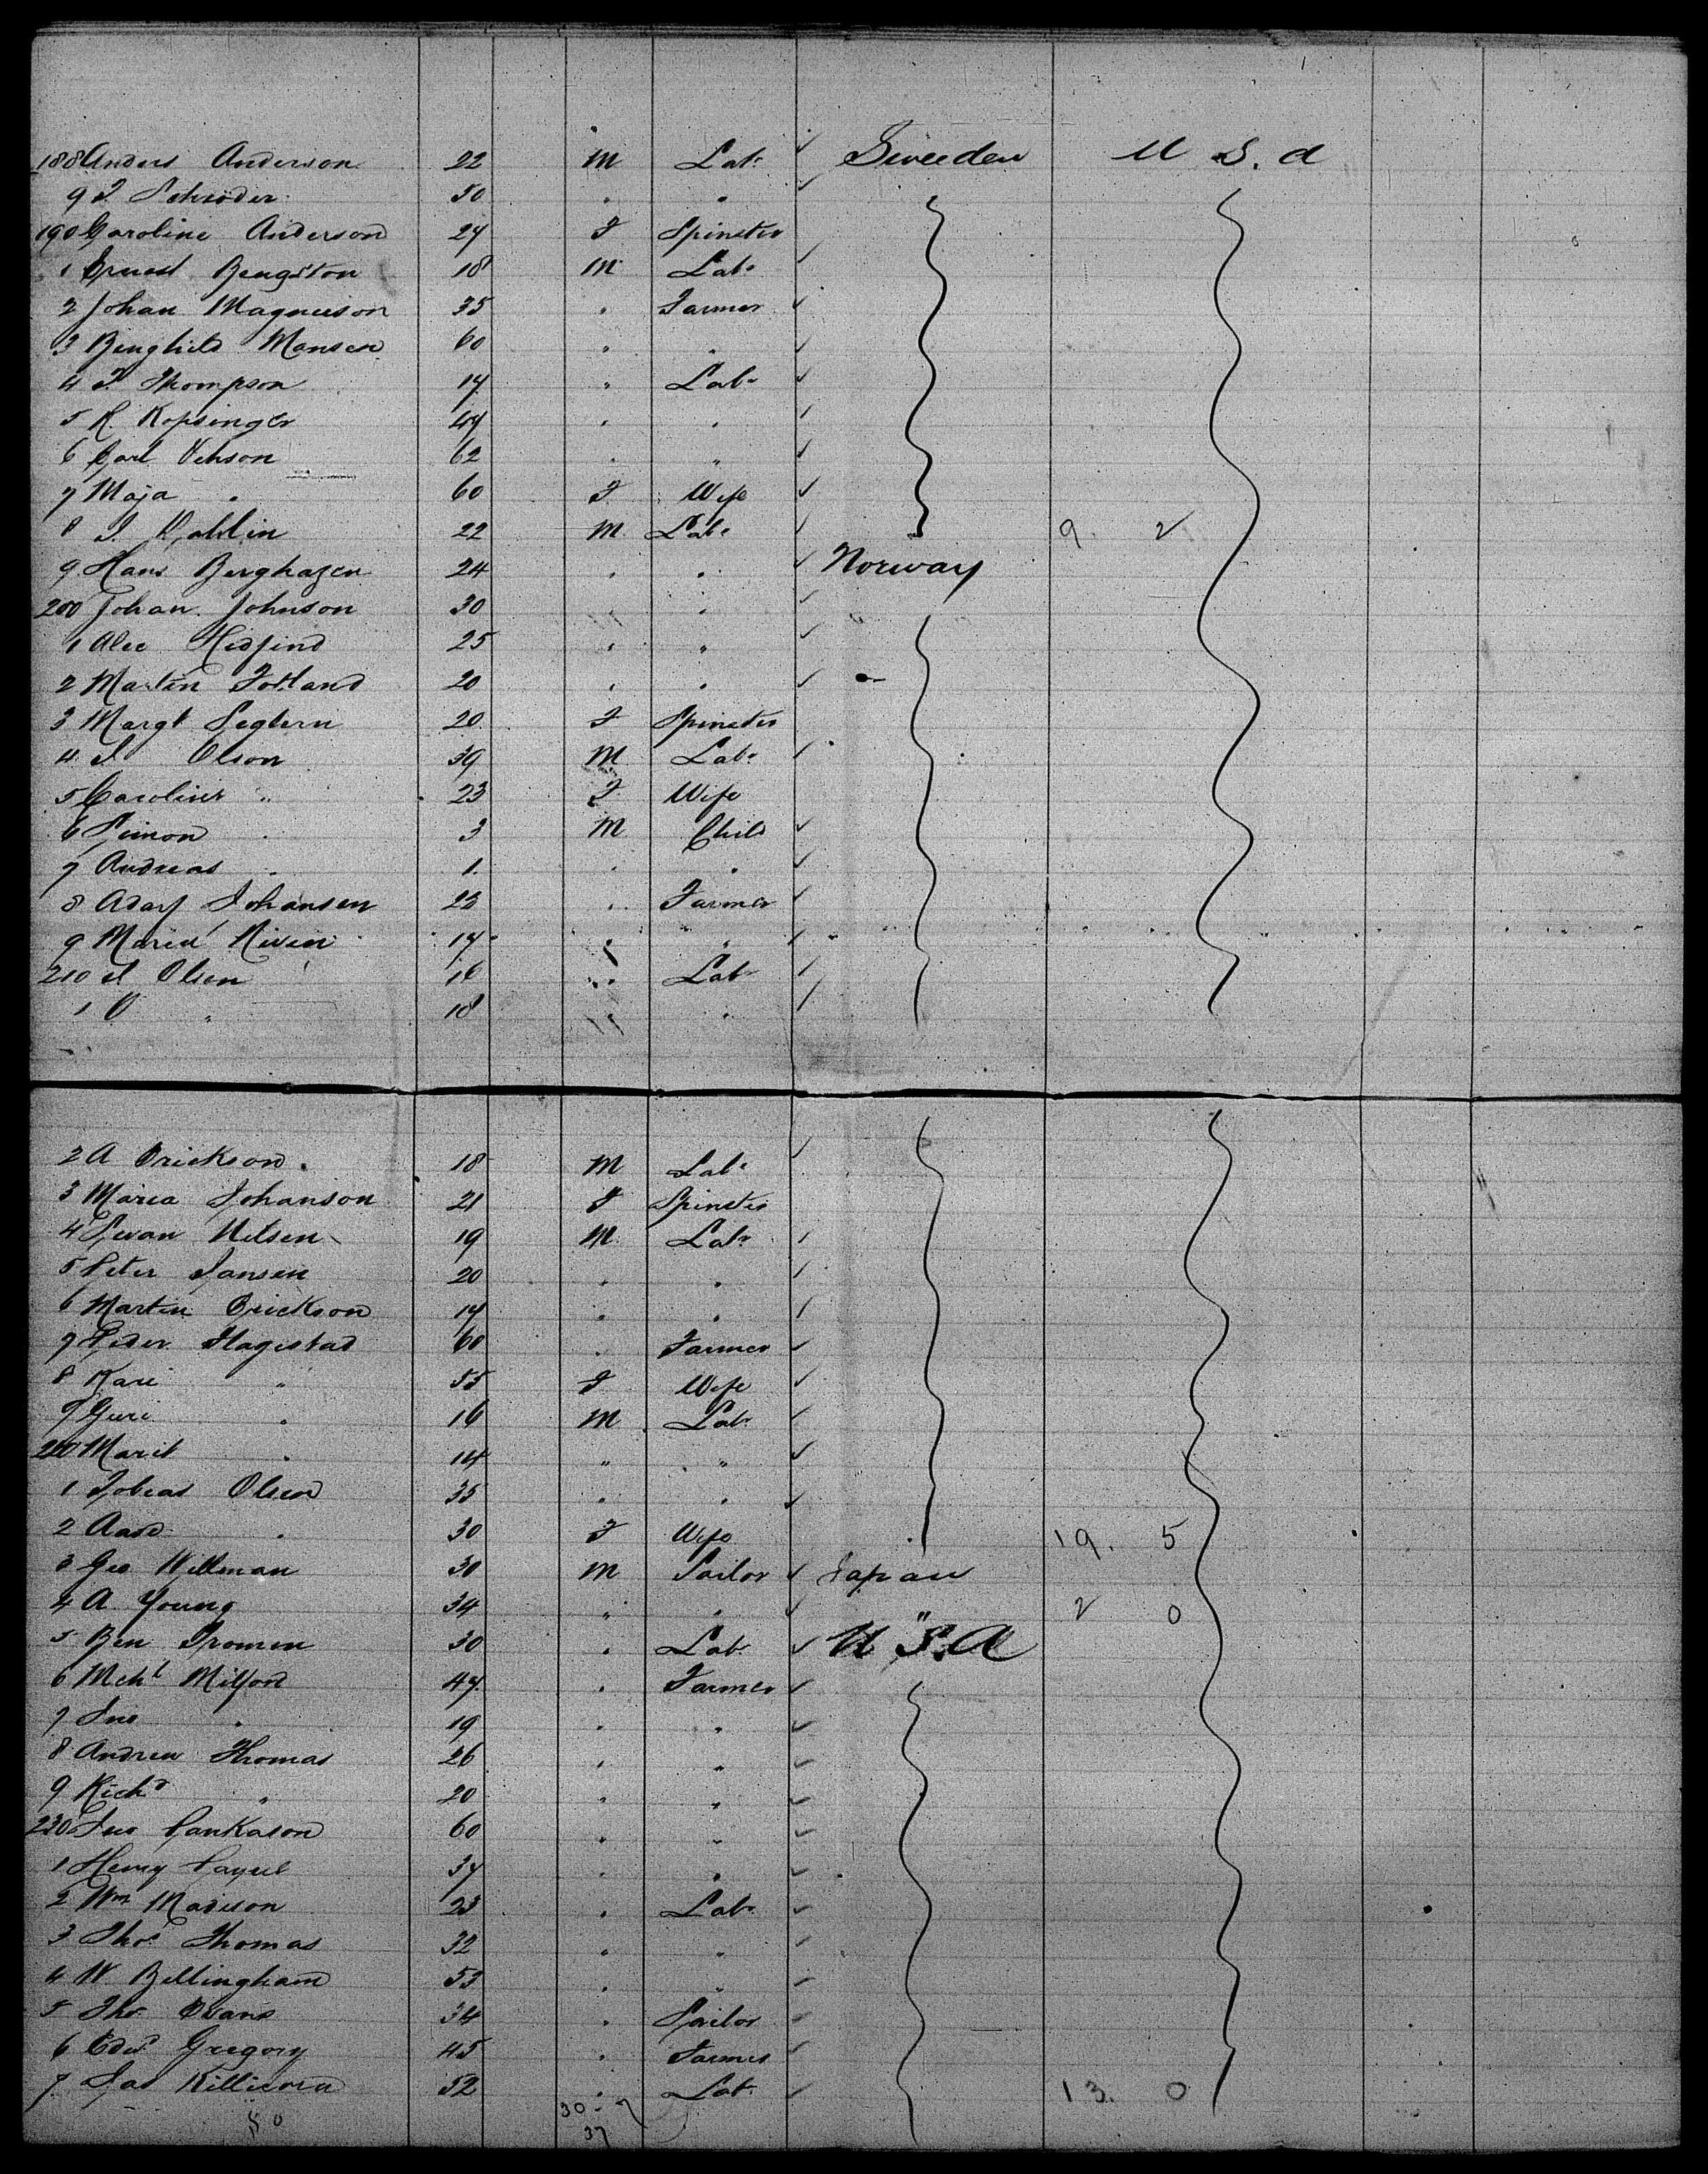 188 Anders Anderson 22 M Lab. Sweeden U S. A
9 J Schroder 50 " "
190 Caroline Anderson 24 F Spinster
1 Ernest Bengston 18 M Lab.
2 Johan Magnuson 35 " Farmer
3 Benghild Mansen 60 " "
4 J Thompson 17 " Lab.
5 K. Kopsinger 49 " "
6 Carl Venson 62 " "
7 Maja " 60 F Wife
8 J. 22 M Lab. 9. 2
9 Hans Berghagen 24 " " Norway
200 Johan Johnson 30 " "
1 Alec 25 " "
2 Martin Fotland 20 " "
3 Margt Segtern 20 F Spinster
4 J Olson 39 M Lab.
5 Caroline " 23 F Wife
6 Simon " 3 M Child
7 Andreas " 1 " "
8 Johansen 22 " Farmer
9 Maria 17 " "
210 Olson 16 " Lab
1 O " 18 " "
2 A Erickson 18 M Lab.
3 Maria Johanson 21 F Spinster
4 Swan Nelsen 19 M Lab.
5 Peter Jansen 20 " "
6 Martin Erickson 17 " "
7 Peder Hagestad 60 " Farmer
8 Kari " 55 F Wife
9 Guri " 16 M Lab.
220 Marit " 14 " "
1 Tobias Olsen 35 " "
2 Aase " 30 F Wife 19. 5
3 Geo Wellman 30 M Sailor Japan
4 A Young 34 " " " 2 0
5 Ben Tromen 30 " Lab. U S. A
6 Mchl Milford 47 " Farmer
7 Jno " 19 " "
8 Andrew Thomas 26 " "
9 Richd " 20 " "
230 Jno Cankason 60 " "
1 Henry 37 " "
2 Wm Madison 23 " Lab.
3 Thos Thomas 32 " "
4 W Bellingham 53 " "
5 Tho Evans 34 " Sailor
6 Edwd Gregory 45 " Farmer
7 Jas 32 " Lab. 13. 0
50 30 - 7
37